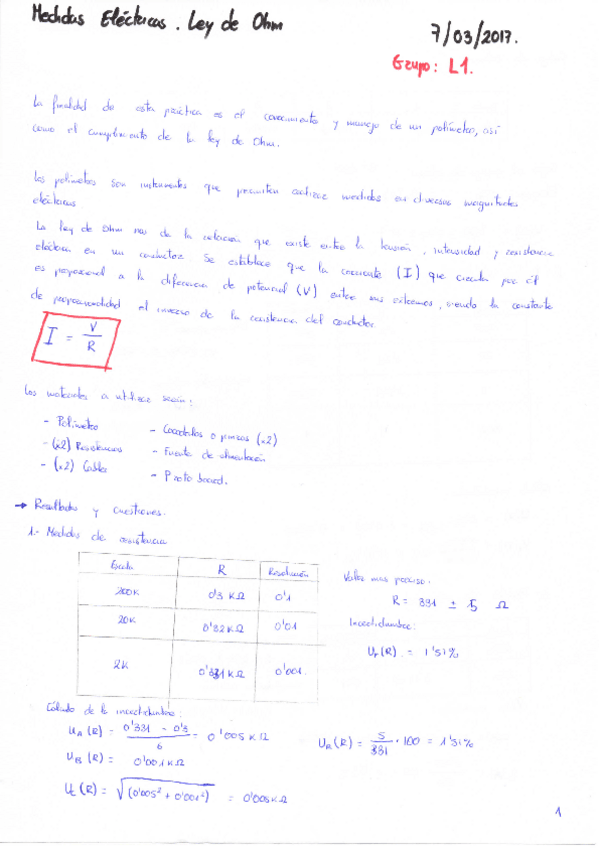 Medidas Eléctricas. Ley de Ohm
7/03/2017.
Grupo: L1.
La finalidad de esta práctica es el conocimiento y manejo de un polímetro, así
como el cumplimiento de la ley de Ohm.
Los polímetros son instrumentos que permiten realizar medidas en diversas magnitudes
eléctricas
La ley de Ohm nos da la relación que existe entre la tensión, intensidad y resistencia
eléctrica en un conductor. Se establece que la corriente (I) que circula por él
es proporcional a la diferencia de potencial (V) entre sus extremos, siendo la constante
de proporcionalidad el inverso de la resistencia del conductor
I = V/R
Los materiales a utilizar serán:
- Polímetro
- (x2) Resistencias
- (x2) Cables
- Cocodrilos o pinzas (x2)
- Fuente de alimentación
- Proto board.
→ Resultados y cuestiones.
1.- Medidas de resistencia
Escala R Resolución
200K 0'3 KΩ 0'1
20K 0'32 KΩ 0'01
2K 0'331 KΩ 0'001
Valor más preciso:
R = 331 ± 5 Ω
Incertidumbre:
Ur(R) = 1'51%
Cálculo de la incertidumbre:
UA (R) = (0'331 - 0'3)/6 = 0'005 KΩ
UB (R) = 0'001 KΩ
Uc (R) = √(0'005² + 0'001²) = 0'005 KΩ
UR (R) = 5/331 · 100 = 1'51%
1